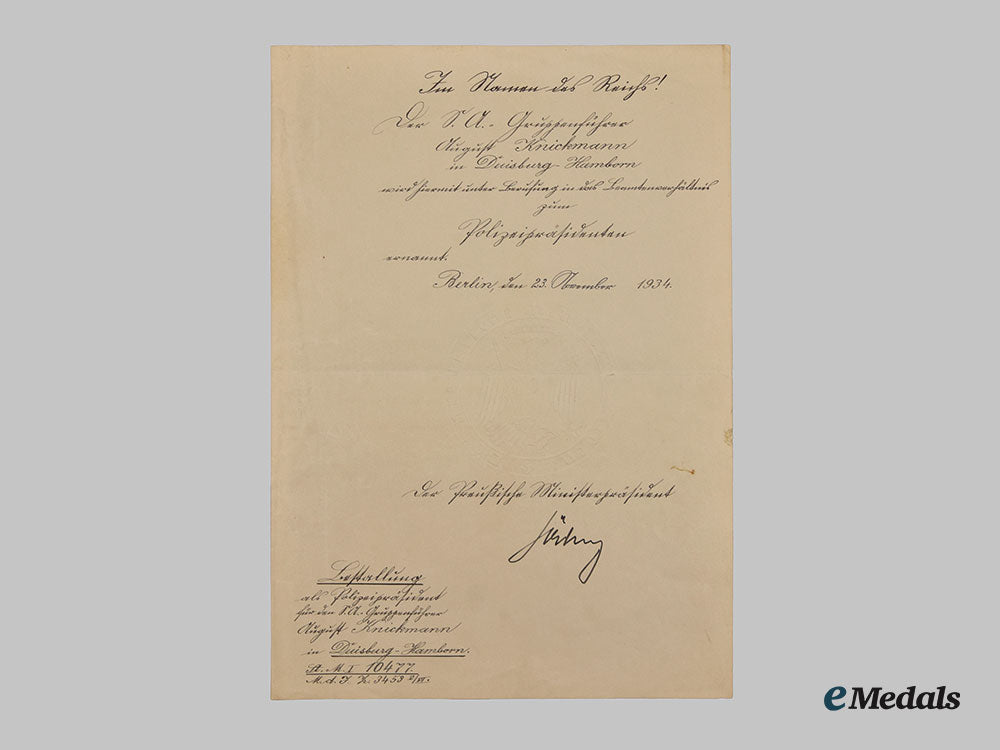 Im Namen des Reichs!
Der S. A.- Gruppenführer
August Knickmann
in Duisburg-Hamborn
wird hiermit unter Berufung in das Beamtenverhältnis
zum
Polizeipräsidenten
ernannt.
Berlin, den 23. November 1934.
Der Preußische Ministerpräsident
Göring
Bestallung
als Polizeipräsident
für den S.A.-Gruppenführer
August Knickmann
in Duisburg-Hamborn.
St. M. I 10477.
M. d. I. 3453
eMedals